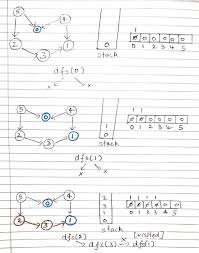 5 4
0
2 1
3
1
0
stack
0 0 0 0 0 0
0 1 2 3 4 5
dfs(0)
x x
1 1
5 4
0
2 1
3
1
0
stack
0 1 2 3 4 5
dfs(1)
x x
5 4
0
2 3 1
2
3
1
0
stack
0 1 2 3 4 5
dfs(2)
dfs(3) x dfs(1)
(visited)